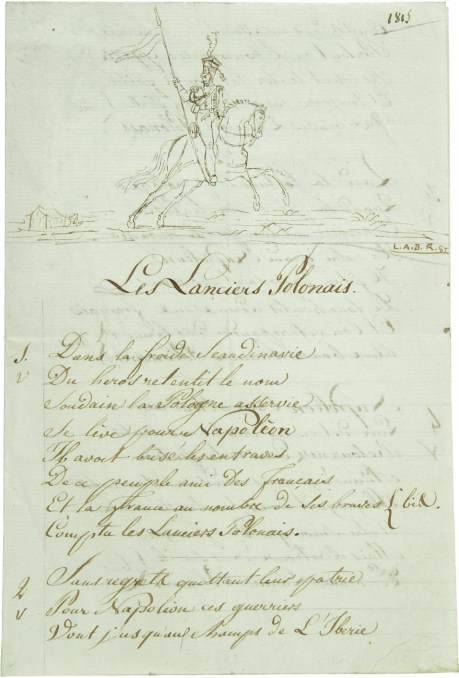 1815
L.A.B.R. St
Les Lanciers Polonais.
1. Dans la froide Scandinavie
v Du heros retentit le nom
soudain la Pologne asservie
se live pour Napoléon
Il avoit brisé les entraves
De ce peuple ami des français
Et la france au nombre de ses braves { bis.
Compte les Lanciers Polonais.
2 Sans regrets quittant leur patrie
v Pour Napolion ces guerriers
Vont jusqu'au champs de L'Iberie